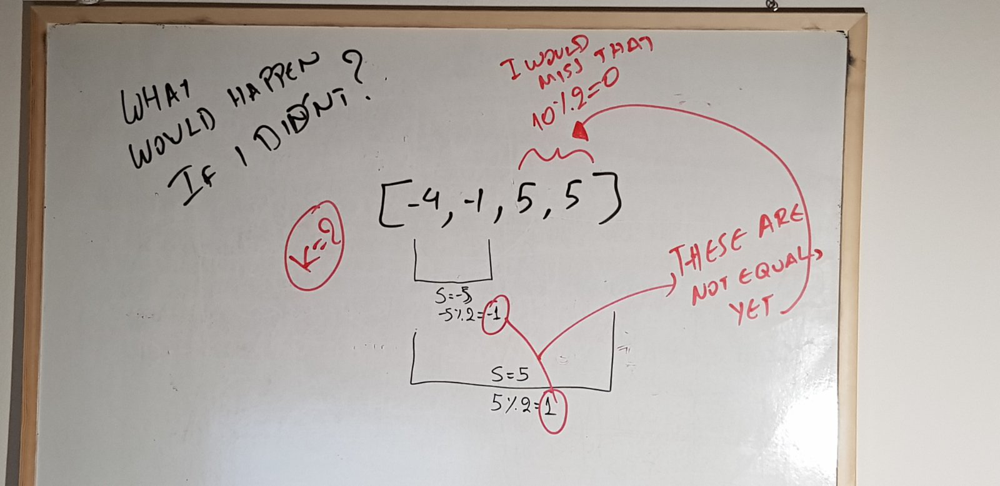 WHAT
WOULD HAPPEN
IF I DIDNT?
I WOULD
MISS THAT
10%2=0
[-4, -1, 5, 5]
K=2
S=-5
-5%2=-1
S=5
5%2=1
THESE ARE
NOT EQUAL,
YET